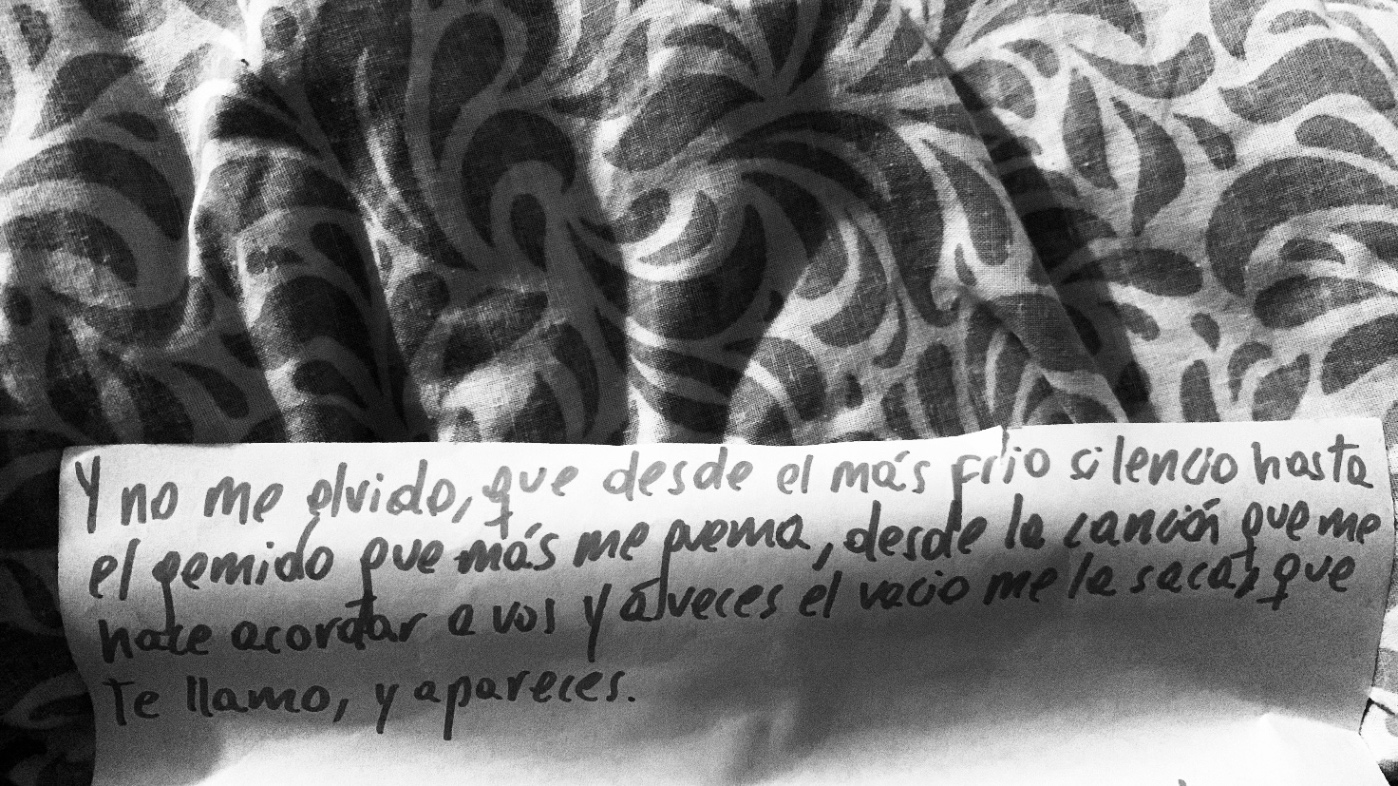 Y no me olvido, que desde el más frio silencio hasta
el gemido que más me quema, desde la canción que me
hace acordar a vos y a veces el vacio me la saca, que
te llamo, y apareces.